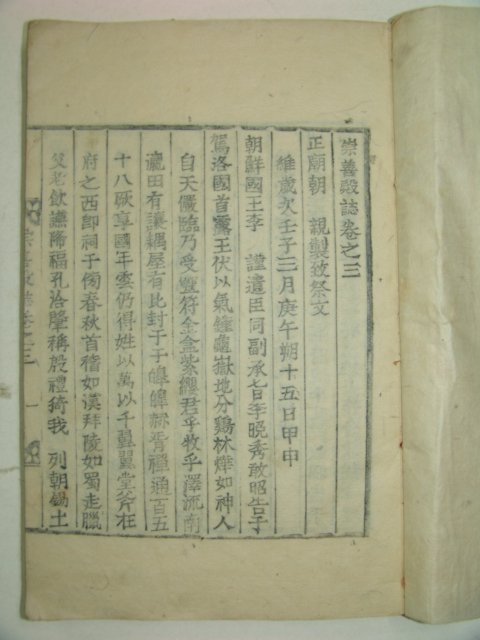 崇善殿誌卷之三
正廟朝 親製致祭文
維歲次壬子三月庚午朔十五日甲申
朝鮮國王李 謹遣臣同副承旨李晩秀敢昭告于
駕洛國首露王伏以氣鍾龜嶽地分鷄林燁如神人
自天儼臨乃受豐符金盒紫纓君乎牧乎澤流南
瀛田有讓耦屋有比封于于皥皥赫胥禪通百五
十八厥享國年雲仍得姓以萬以千翼翼堂斧在
府之西卽祠于傍春秋首稽如漢拜陵如蜀走臘
父老飮讌降福孔洽肇稱殷禮猗我 列朝錫土
崇善殿誌卷之三 一